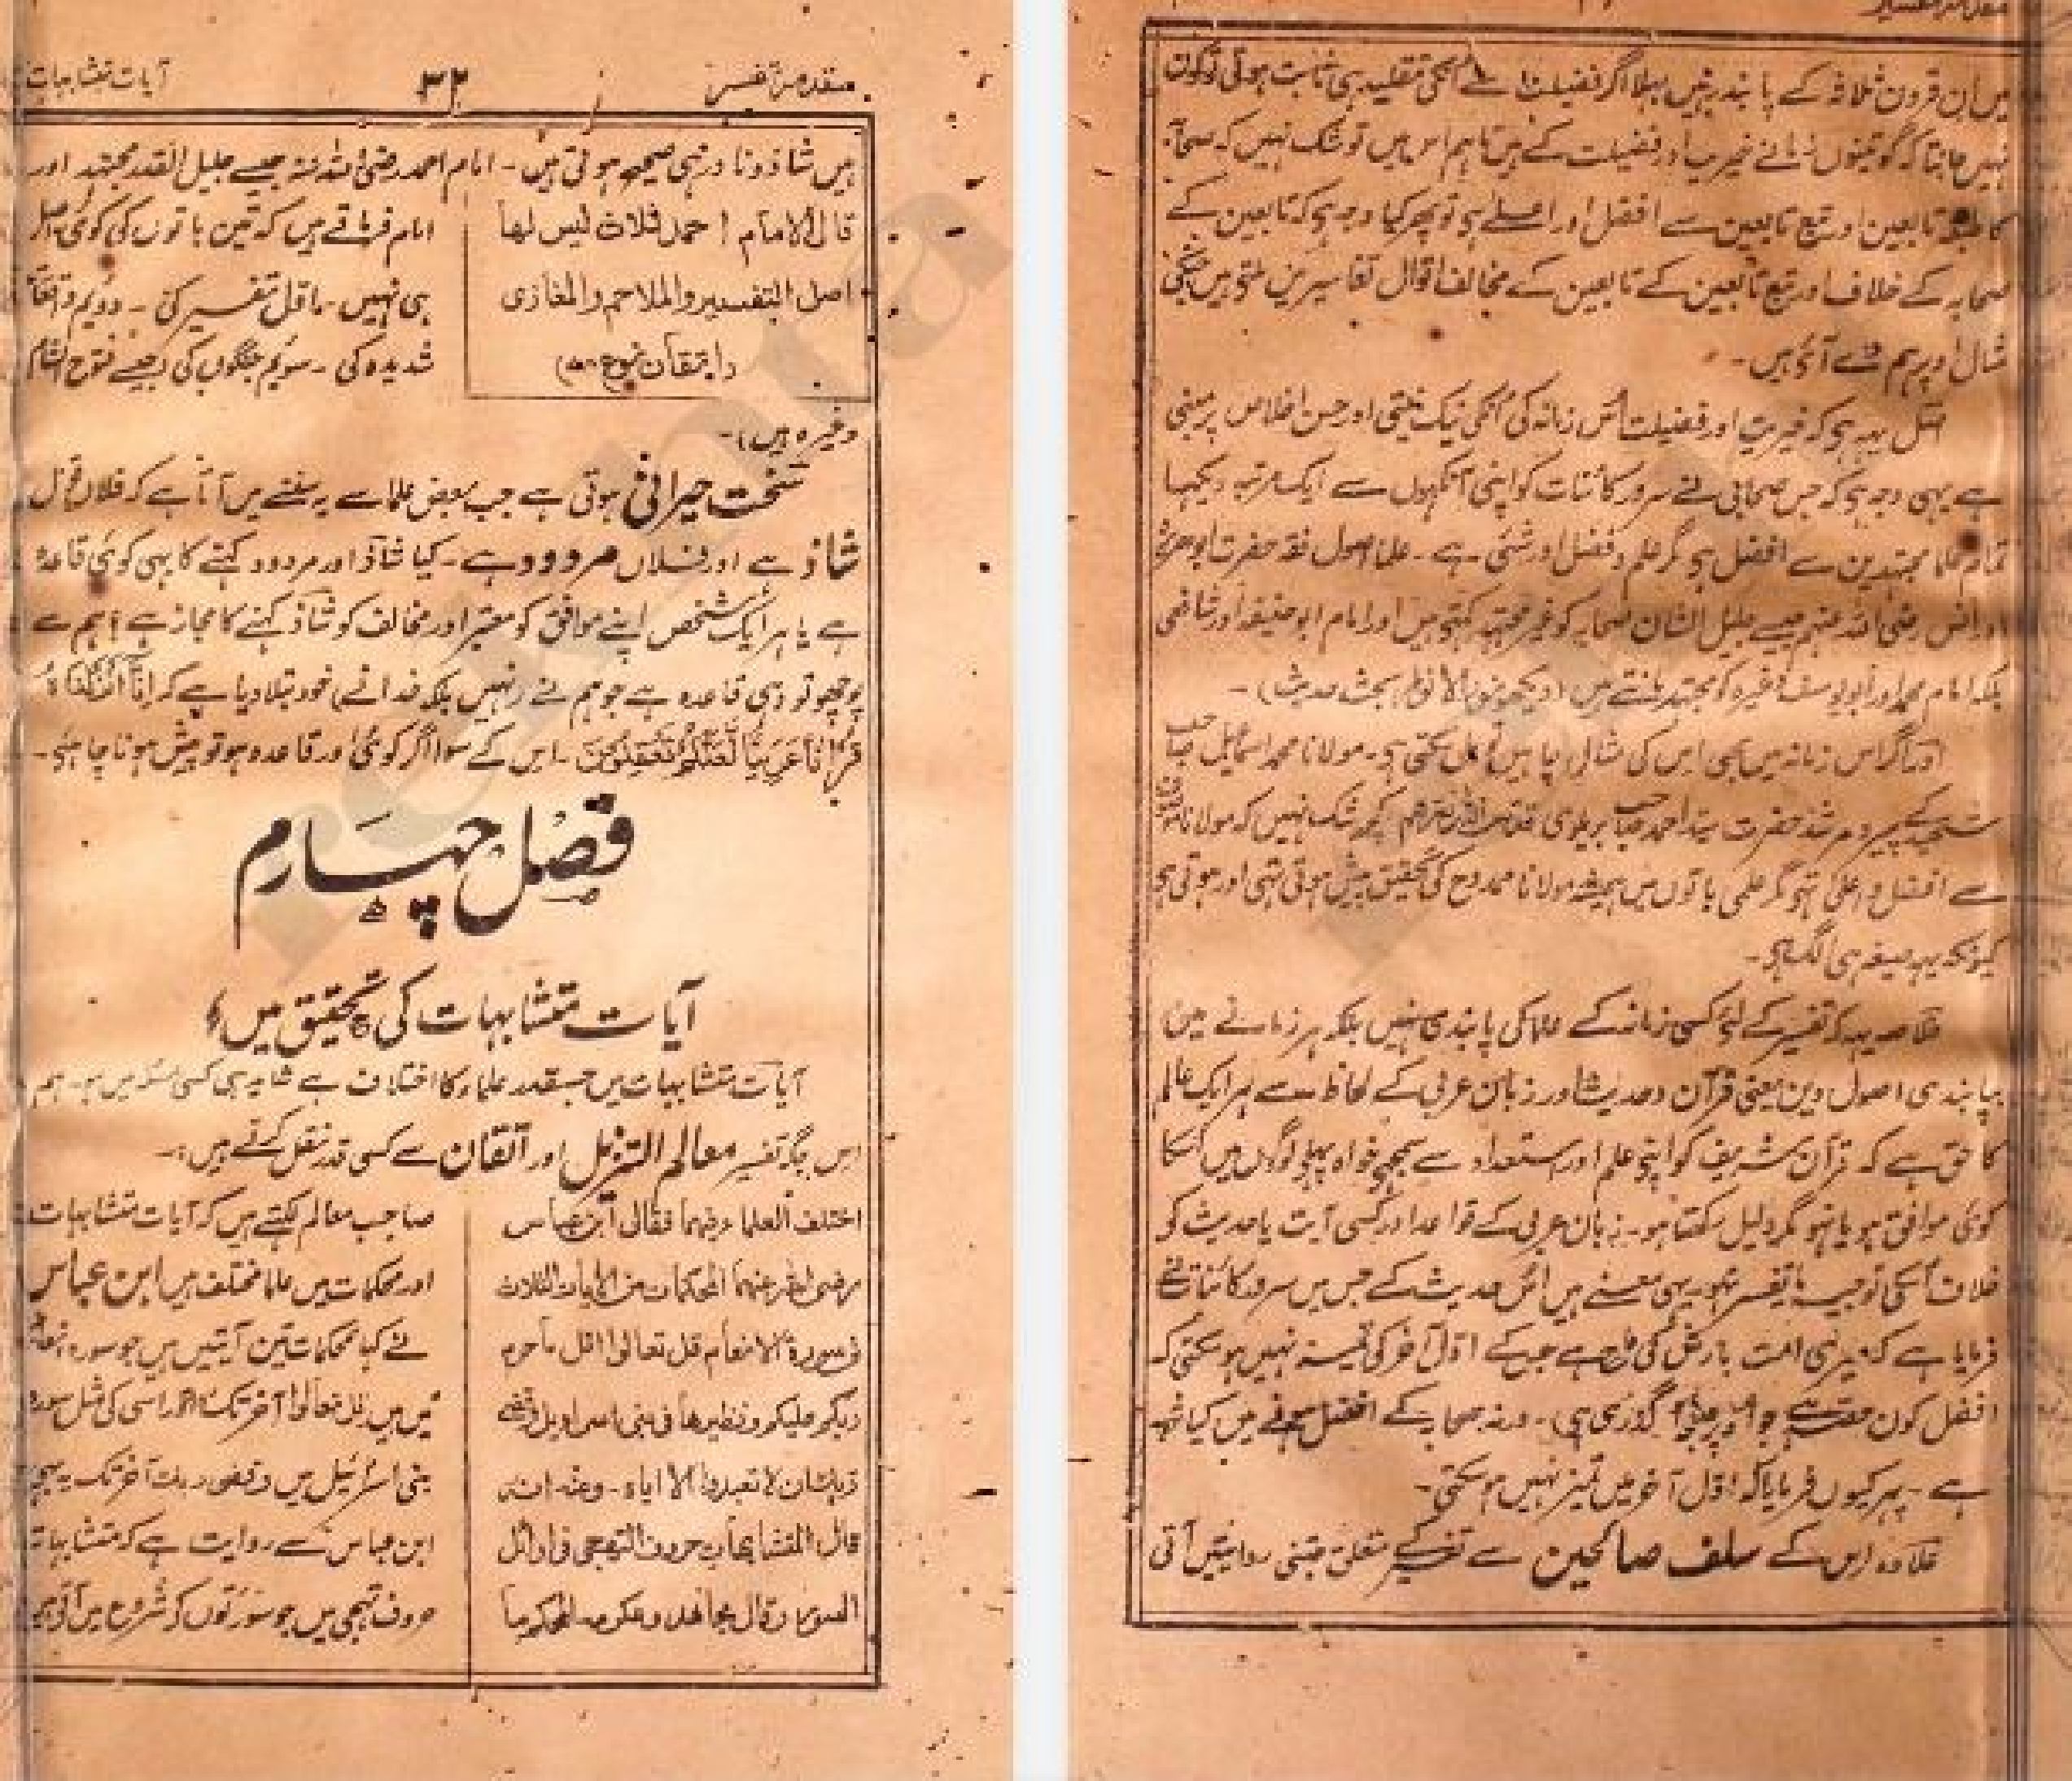 میں ان قرون ثلاثہ کے پابند رہیں بہلا اگر فضیلت سے اُنکی تقلید ہی ثابت ہوتی تو کون
نہیں جانتا کہ گو تینوں زمانے خیریت اور فضیلت کے ہیں تاہم اس میں تو شک نہیں کہ صحابہ
کا طبقہ تابعین اور تبع تابعین سے افضل اور اعلےٰ ہی تو پھر کیا وجہ ہی کہ تابعین کے
صحابہ کے خلاف اور تبع تابعین کے تابعین کے مخالف اقوال تفاسیر میں ملتے ہیں جنکی
مثال اوپر ہم دے آئے ہیں۔
اصل یہہ ہی کہ خیریت اور فضیلت اُس زمانہ کی اُنکی نیک نیتی اور حسن اخلاص پر مبنی
ہے یہی وجہ ہی کہ جس صحابی نے سرور کائنات کو اپنی آنکہوں سے ایک مرتبہ دیکہا
تمام علما مجتہدین سے افضل ہی مگر علم و فضل اور شئی ہے۔ علما اصول فقہ حضرت ابوہریرہ
اور انس رضی اللہ عنہم جیسے جلیل الشان صحابہ کو غیر مجتہد کہتی ہیں اور امام ابو حنیفہ اور شافعی
بلکہ امام محمد اور ابو یوسف وغیرہ کو مجتہد مانتے ہیں (دیکہو نور الانوار بحث حدیث)۔
اور اگر اس زمانہ میں بھی اس کی مثال چاہیں تو مل سکتی ہی۔ مولانا محمد اسماعیل صاحب
شہید کے پیر و مرشد حضرت سید احمد صاحب بریلوی قدس اللہ سرہم کچھ شک نہیں کہ مولانا
سے افضل و اعلیٰ تہے مگر علمی باتوں میں ہمیشہ مولانا ممدوح کی تحقیق پیش ہوتی تہی اور ہوتی ہی
کیونکہ یہہ صیغہ ہی الگ ہی۔
خلاصہ یہہ کہ تفسیر کے لئے کسی زمانہ کے علما کی پابندی نہیں بلکہ ہر زمانے میں
بپابندی اصول دین یعنی قرآن و حدیث اور زبان عربی کے لحاظ سے ہر ایک عالم
کا حق ہے کہ قرآن شریف کو اپنی علم اور استعداد سے سمجہے خواہ پہلے لوگوں میں اُسکا
کوئی موافق ہو یا نہو مگر دلیل رکھتا ہو۔ زبان عربی کے قواعد اور کسی آیت یا حدیث کے
خلاف اُسکی توجیہ یا تفسیر نہو۔ یہی معنے ہیں اُس حدیث کے جس میں سرور کائنات نے
فرمایا ہے کہ میری امت بارش کی طرح ہے جس کے اوّل آخر کی تمیز نہیں ہو سکتی کہ
افضل کون گذری ہی۔ ورنہ صحابہ کے افضل ہونے میں کیا شبہ
ہے۔ پہر کیوں فرمایا کہ اوّل آخر میں تمیز نہیں ہو سکتی۔
علاوہ اس کے سلف صالحین سے تفسیر کے متعلق جتنی روایتیں آتی
مقدمہ تفسیر
۳۲
آیات متشابہات
ہیں شاذ و نادر ہی صحیح ہوتی ہیں۔ امام احمد رضی اللہ عنہ جیسے جلیل القدر مجتہد اور
قال الامام احمد ثلاث ليس لها
اصل التفسير والملاحم والمغازی
(اتقان نوع)
امام فرماتے ہیں کہ تین باتوں کی کوئی اصل
ہی نہیں۔ اوّل تفسیر کی۔ دوئیم واقعات
شدیدہ کی۔ سوئیم جنگوں کی (جیسے فتوح الشام
وغیرہ ہیں)۔
سخت حیرانی ہوتی ہے جب بعض علما سے یہ سننے میں آتا ہے کہ فلاں قول
شاذ ہے اور فلاں مردود ہے۔ کیا شاذ اور مردود کہنے کا بہی کوئی قاعدہ
ہے یا ہر ایک شخص اپنے موافق کو معتبر اور مخالف کو شاذ کہنے کا مجاز ہے؟ ہم سے
پوچھو تو وہی قاعدہ ہے جو ہم نے نہیں بلکہ خدا نے خود بتلا دیا ہے کہ اِنَّا اَنْزَلْنٰهُ
قُرْاٰنًا عَرَبِيًّا لَّعَلَّكُمْ تَعْقِلُوْنَ۔ اس کے سوا اگر کوئی اور قاعدہ ہو تو پیش ہونا چاہئے۔
فصل چہارم
آیات متشابہات کی تحقیق میں
آیات متشابہات میں جسقدر علماء کا اختلاف ہے شاید ہی کسی مسئلہ میں ہو۔ ہم
اس جگہ تفسیر معالم التنزیل اور اتقان سے کسی قدر نقل کرتے ہیں:۔
اختلف العلماء فيهما فقال ابن عباس
رضی الله عنهما المحكمات من الايات الثلاث
فی سورة الانعام قل تعالوا اتل ما حرم
ربكم عليكم ونظيرها فی بنی اسراويل وقضی
ربك ان لا تعبدوا الا اياه۔ وعنه انه
قال المتشابهات حروف التهجی فی اوائل
السور وقال مجاهد وعكرمه المحكم ما
صاحب معالم لکہتے ہیں کہ آیات متشابہات
اور محکمات میں علما مختلف ہیں ابن عباس
نے کہا محکمات تین آیتیں ہیں جو سورہ انعام
میں ہیں قل تعالوا آخر تک اور اسی کی مثل سورہ
بنی اسرائیل میں وقضی ربک آخر تک یہ بہی
ابن عباس سے روایت ہے کہ متشابہات
حروف تہجی ہیں جو سورتوں کے شروع میں آتی ہیں